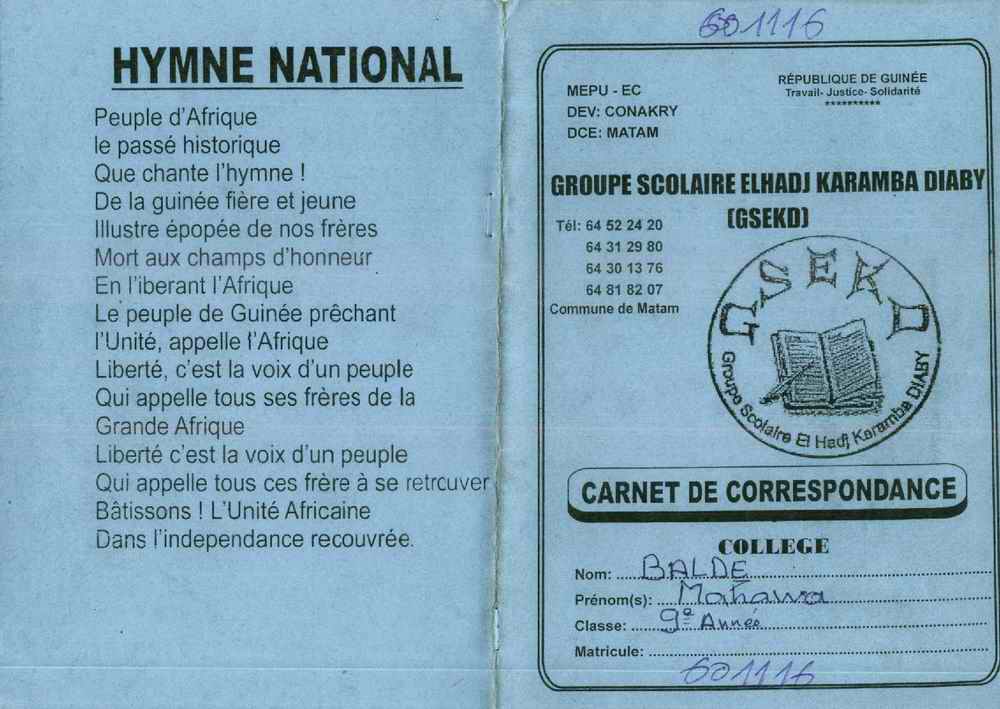 HYMNE NATIONAL
Peuple d'Afrique
le passé historique
Que chante l'hymne !
De la guinée fière et jeune
Illustre épopée de nos frères
Mort aux champs d'honneur
En l'iberant l'Afrique
Le peuple de Guinée prêchant
l'Unité, appelle l'Afrique
Liberté, c'est la voix d'un peuple
Qui appelle tous ses frères de la
Grande Afrique
Liberté c'est la voix d'un peuple
Qui appelle tous ces frère à se retrouver
Bâtissons ! L'Unité Africaine
Dans l'independance recouvrée.
601116
MEPU - EC
DEV: CONAKRY
DCE: MATAM
RÉPUBLIQUE DE GUINÉE
Travail- Justice- Solidarité
**********
GROUPE SCOLAIRE ELHADJ KARAMBA DIABY
(GSEKD)
Tél: 64 52 24 20
64 31 29 80
64 30 13 76
64 81 82 07
Commune de Matam
GSEKD
Groupe Scolaire El Hadj Karamba DIABY
CARNET DE CORRESPONDANCE
COLLEGE
Nom: BALDE
Prénom(s): Mahawa
Classe: 9e Année
Matricule:
601116